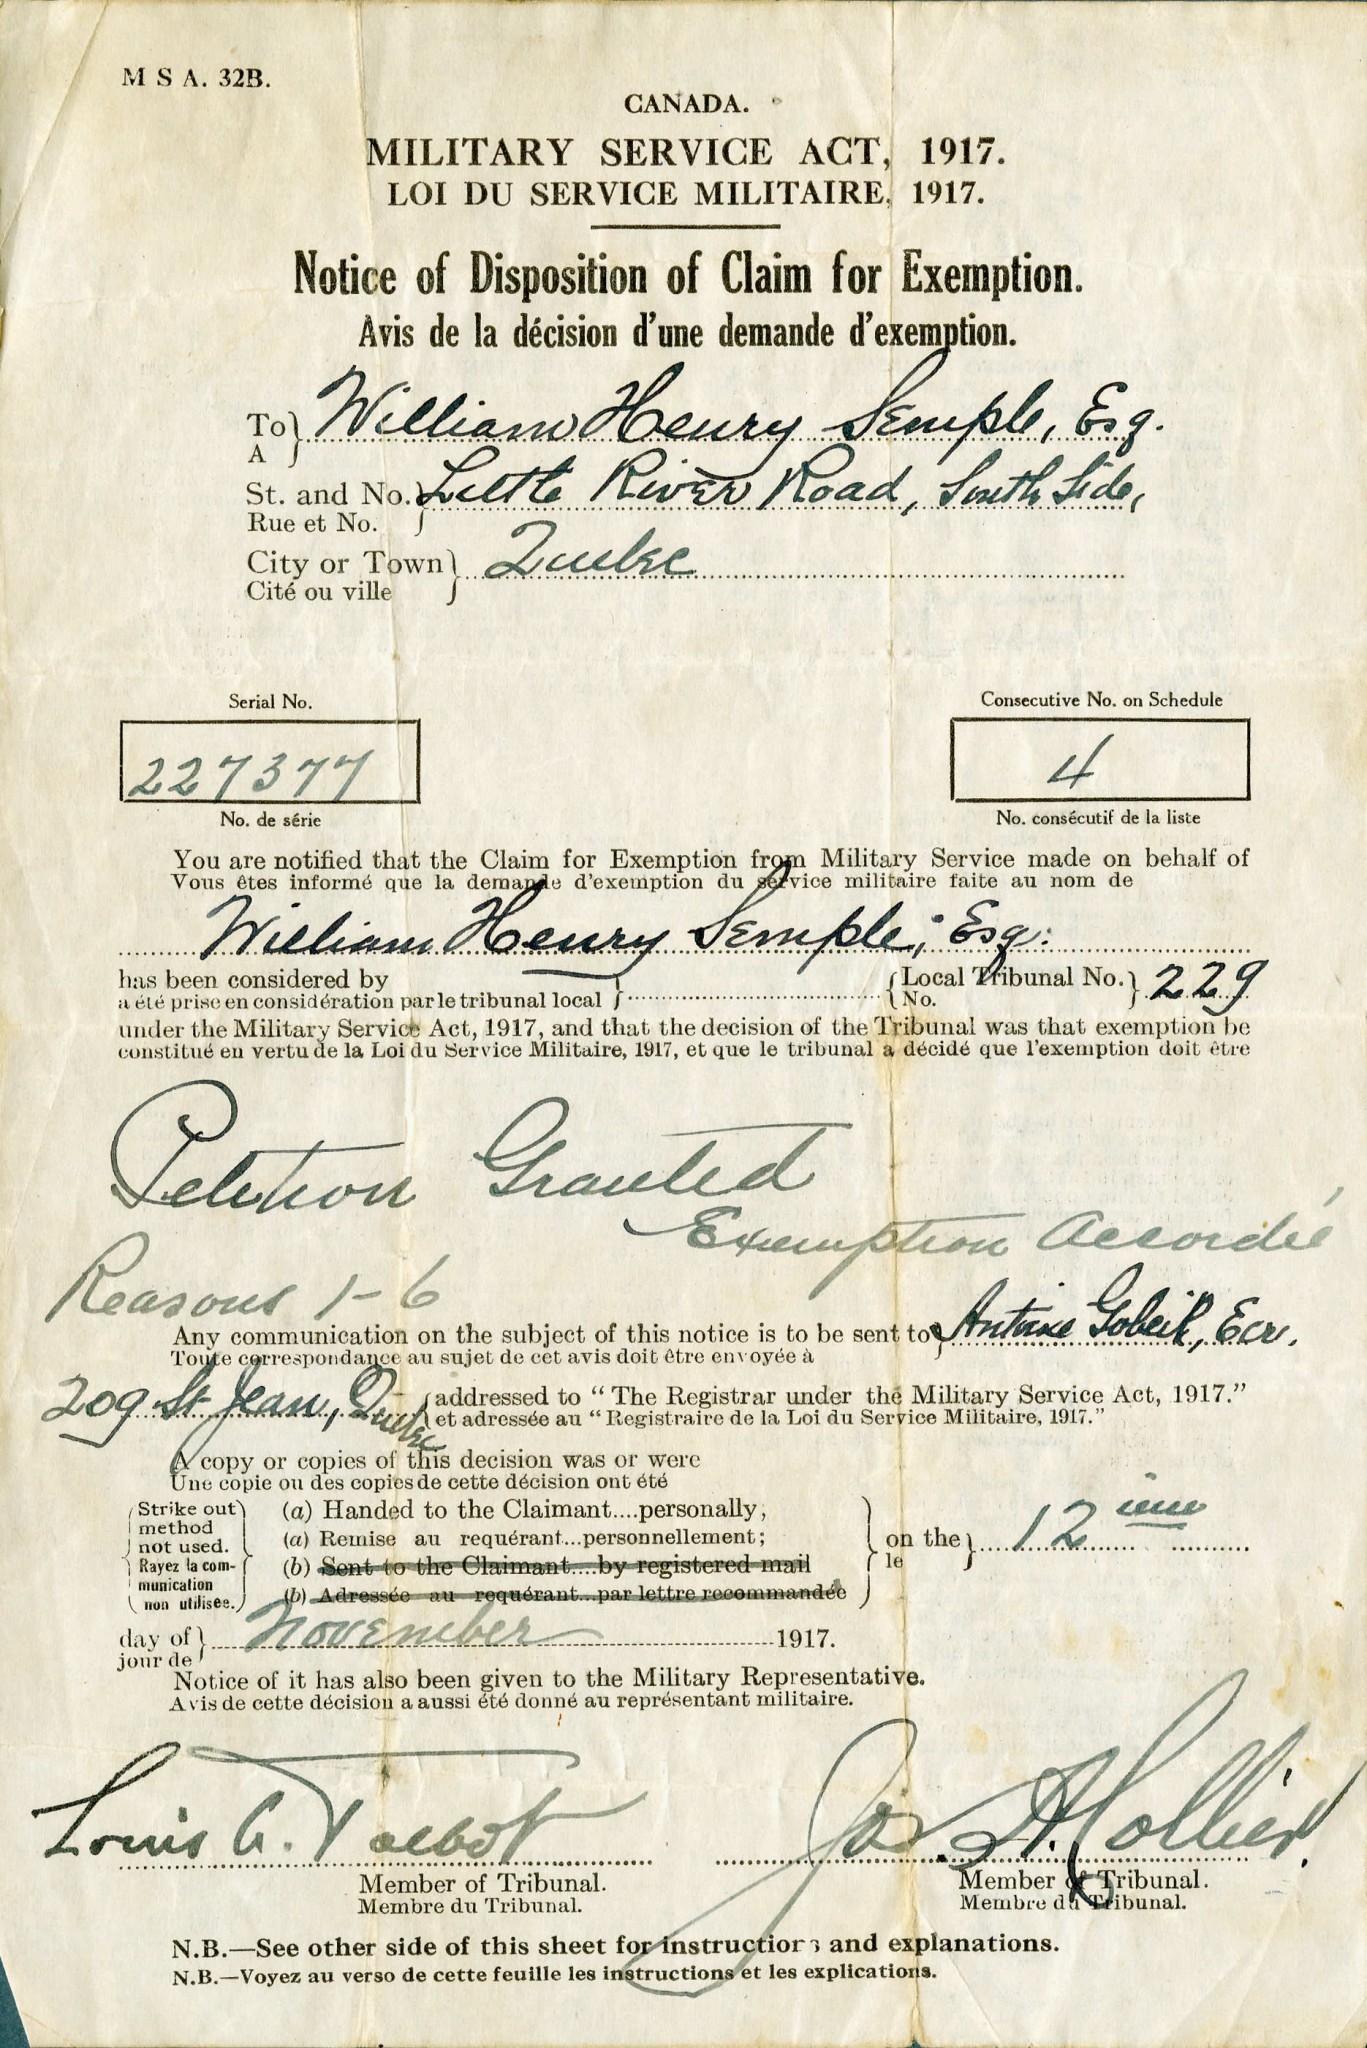 M S A. 32B.
CANADA.
MILITARY SERVICE ACT, 1917.
LOI DU SERVICE MILITAIRE, 1917.
Notice of Disposition of Claim for Exemption.
Avis de la décision d'une demande d'exemption.
To } William Henry Semple, Esq.
A
St. and No. } Little River Road, South Side,
Rue et No.
City or Town } Quebec
Cité ou ville
Serial No.
Consecutive No. on Schedule
227377
4
No. de série
No. consécutif de la liste
You are notified that the Claim for Exemption from Military Service made on behalf of
Vous êtes informé que la demande d'exemption du service militaire faite au nom de
William Henry Semple, Esq.
has been considered by { Local Tribunal No. } 229
a été prise en considération par le tribunal local } No.
under the Military Service Act, 1917, and that the decision of the Tribunal was that exemption be
constitué en vertu de la Loi du Service Militaire, 1917, et que le tribunal a décidé que l'exemption doit être
Petition Granted
Exemption Accordée
Reasons 1-6
Any communication on the subject of this notice is to be sent to } Antoine Gobeil, Ecr.
Toute correspondance au sujet de cet avis doit être envoyée à
209 St Jean, Quebec { addressed to "The Registrar under the Military Service Act, 1917."
et adressée au "Registraire de la Loi du Service Militaire, 1917."
A copy or copies of this decision was or were
Une copie ou des copies de cette décision ont été
Strike out method not used.
Rayez la communication non utilisée.
(a) Handed to the Claimant....personally,
(a) Remise au requérant...personnellement;
(b) Sent to the Claimant....by registered mail
(b) Adressée au requérant...par lettre recommandée
on the } 12 ième
le
day of } November 1917.
jour de
Notice of it has also been given to the Military Representative.
Avis de cette décision a aussi été donné au représentant militaire.
Louis A. Talbot
Member of Tribunal.
Membre du Tribunal.
Member of Tribunal.
Membre du Tribunal.
N.B.—See other side of this sheet for instructions and explanations.
N.B.—Voyez au verso de cette feuille les instructions et les explications.